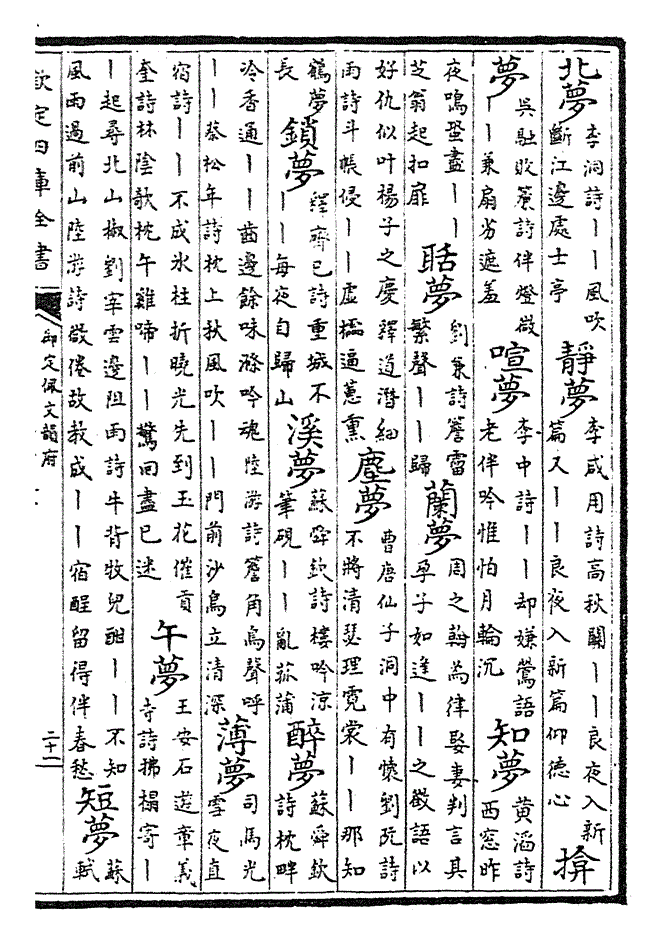 北夢 李洞詩丨丨風吹
斷江邊處士亭
靜夢 李咸用詩高秋關丨丨良夜入新
篇又丨丨良夜入新篇仰德心
揜
夢 吳融敗簾詩伴燈微
丨丨兼扇劣遮羞
喧夢 李中詩丨丨却嫌鶯語
老伴吟惟怕月輪沉
知夢 黃滔詩
西窓昨
夜鳴蛩盡丨丨
芝翁起扣扉
聒夢 劉兼詩簷霤
繁聲丨丨歸
蘭夢 周之翰為律娶妻判言其
孕子如逢丨丨之徵語以
好仇似叶楊子之慶 釋道潛細
雨詩斗帳侵丨丨虛櫺逼蕙熏
塵夢 曹唐仙子洞中有懷劉阮詩
不將清瑟理霓裳丨丨那知
鶴夢
長
鎖夢 釋齊已詩重城不
丨丨每夜自歸山
溪夢 蘇舜欽詩樓吟涼
筆硯丨丨亂菰蒲
醉夢 蘇舜欽
詩枕畔
冷香通丨丨齒邊餘味滌吟魂 陸游詩簷角鳥聲呼
丨丨 蔡松年詩枕上秋風吹丨丨門前沙鳥立清深
薄夢 司馬光
雪夜直
宿詩丨丨不成氷柱折曉光先到玉花催 貢
奎詩林陰欹枕午雞啼丨丨驚回盡已迷
午夢 王安石遊章義
寺詩拂榻寄丨
丨起尋北山椒 劉宰雲邊阻雨詩牛背牧兒酣丨丨不知
風雨過前山 陸游詩欲倦故教成丨丨宿酲留得伴春愁
短夢 蘇
軾
欽定四庫全書
御定佩文韻府
二十一